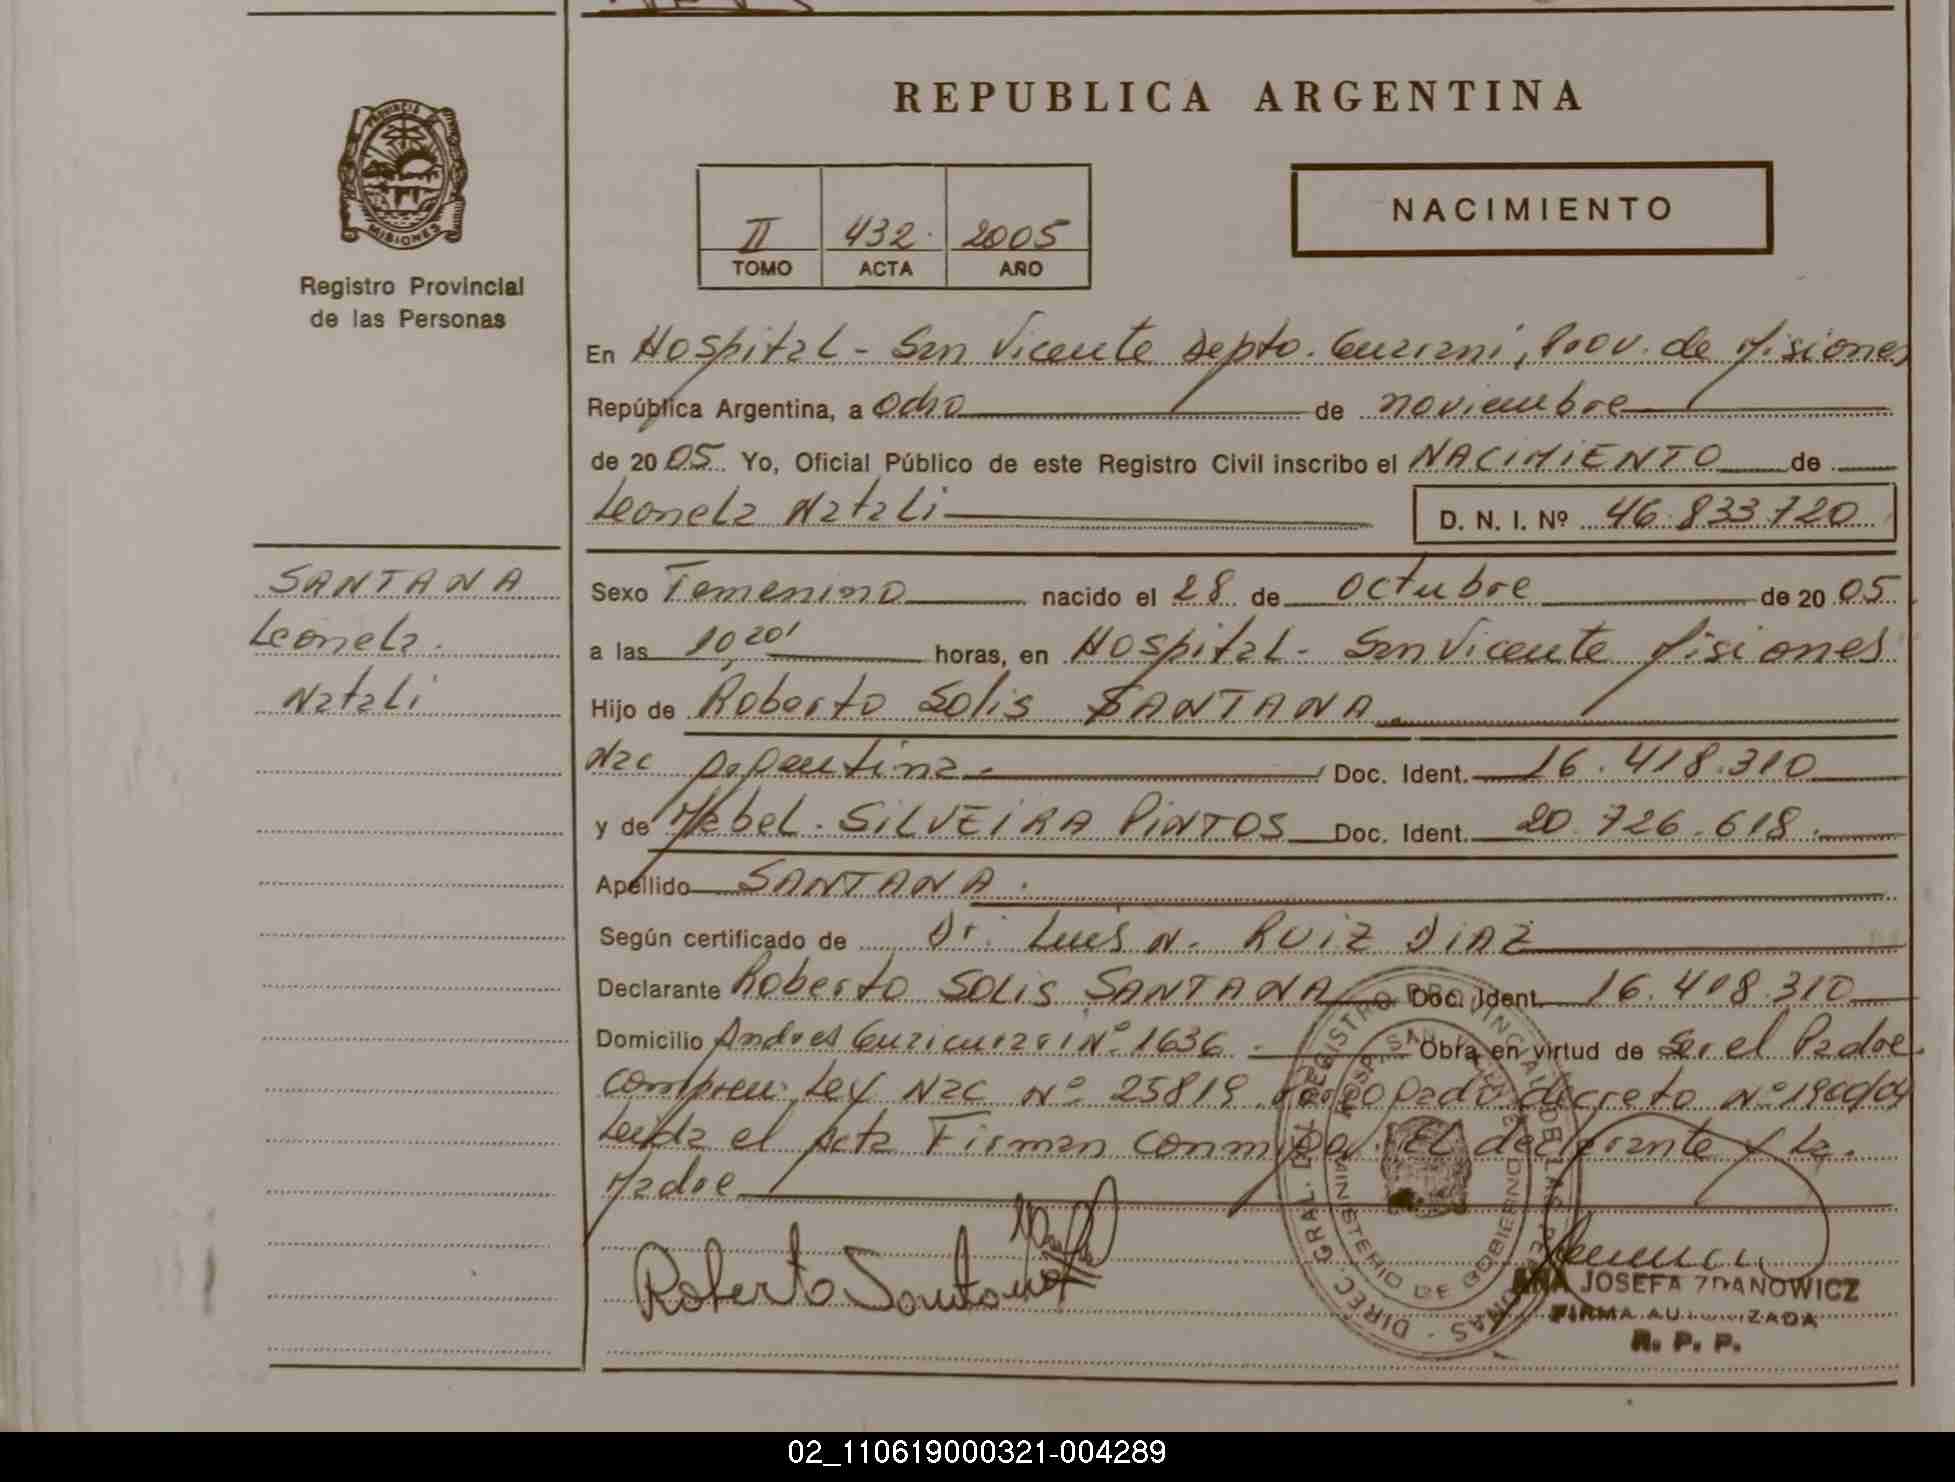 REPUBLICA ARGENTINA
PROVINCIA DE
MISIONES
Registro Provincial
de las Personas
II 432. 2005
TOMO ACTA AÑO
NACIMIENTO
En Hospital - San Vicente Depto. Guarani, Prov. de Misiones
República Argentina, a ocho de noviembre
de 2005. Yo, Oficial Público de este Registro Civil inscribo el NACIMIENTO de
Leonela Natali D. N. I. Nº 46.833.720
SANTANA
Leonela.
Natali
Sexo Femenino nacido el 28 de octubre de 2005
a las 10 20' horas, en Hospital - San Vicente Misiones
Hijo de Roberto Solis SANTANA
Nac Argentina. Doc. Ident. 16.418.310
y de Mabel. SILVEIRA PINTOS Doc. Ident. 20.726.618.
Apellido SANTANA.
Según certificado de Dr. Luis N. RUIZ DIAZ
Declarante Roberto SOLIS SANTANA Doc. Ident. 16.418.310
Domicilio Andres Guacurari Nº 1636. Obra en virtud de Ser el Padre
Ley Nac Nº 25819 decreto Nº
Leida el Acta Firman conmigo. El declarante y la.
Madre
Roberto Santana
DIREC. GRAL. DEL REGISTRO PROVINCIAL DE LAS PERSONAS
MINISTERIO DE GOBIERNO
HOSP. SAN VICENTE
ANA JOSEFA ZDANOWICZ
FIRMA AUTORIZADA
R. P. P.
02_110619000321-004289